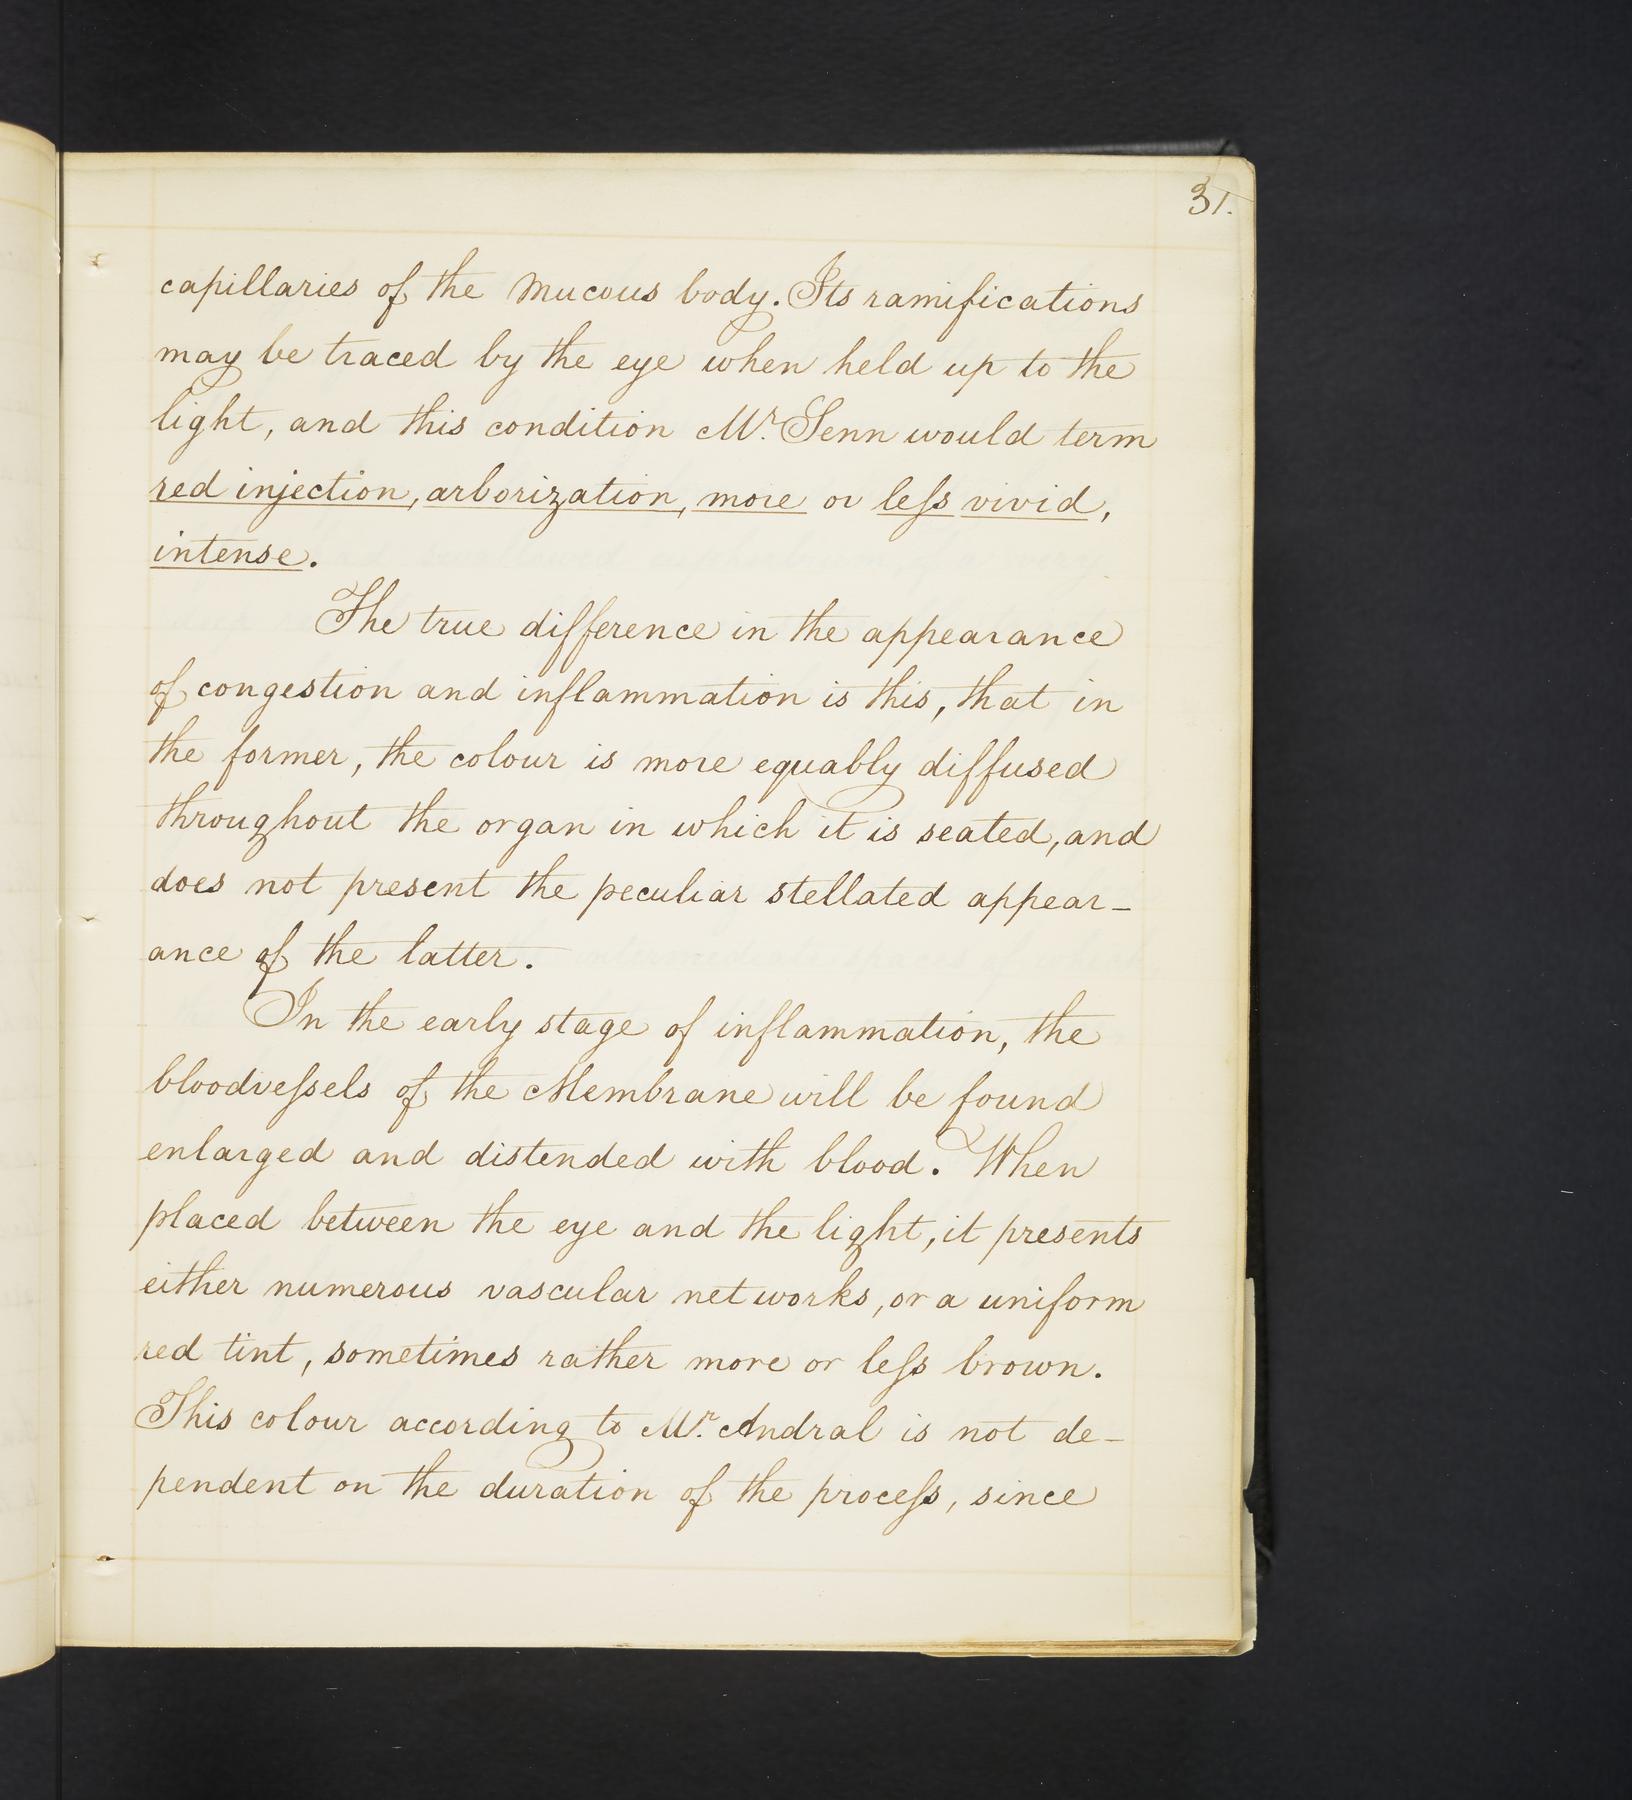 31.
capillaries of the Mucous body. Its ramifications
may be traced by the eye when held up to the
light, and this condition Mr. Senn would term
red injection, arborization, more or leſs vivid,
intense.
The true difference in the appearance
of congestion and inflammation is this, that in
the former, the colour is more equably diffused
throughout the organ in which it is seated, and
does not present the peculiar stellated appear-
ance of the latter.
In the early stage of inflammation, the
bloodveſsels of the Membrane will be found
enlarged and distended with blood. When
placed between the eye and the light, it presents
either numerous vascular networks, or a uniform
red tint, sometimes rather more or leſs brown.
This colour according to Mr. Andral is not de-
pendent on the duration of the proceſs, since